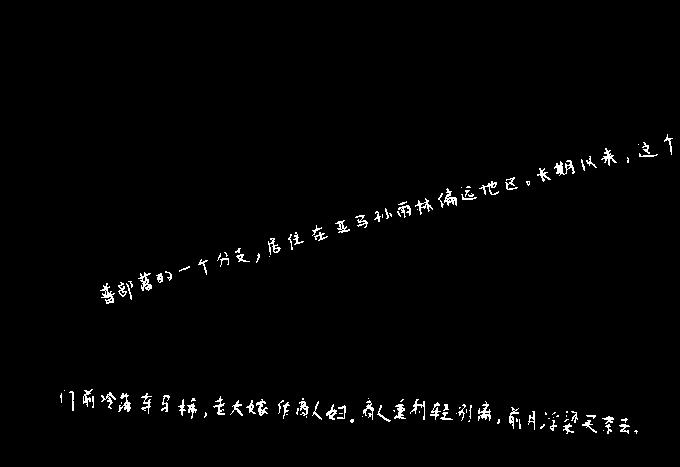 普部落的一个分支，居住在亚马孙雨林偏远地区。长期以来，这个
门前冷落车马稀，老大嫁作商人妇。商人重利轻别离，前月浮梁买茶去。